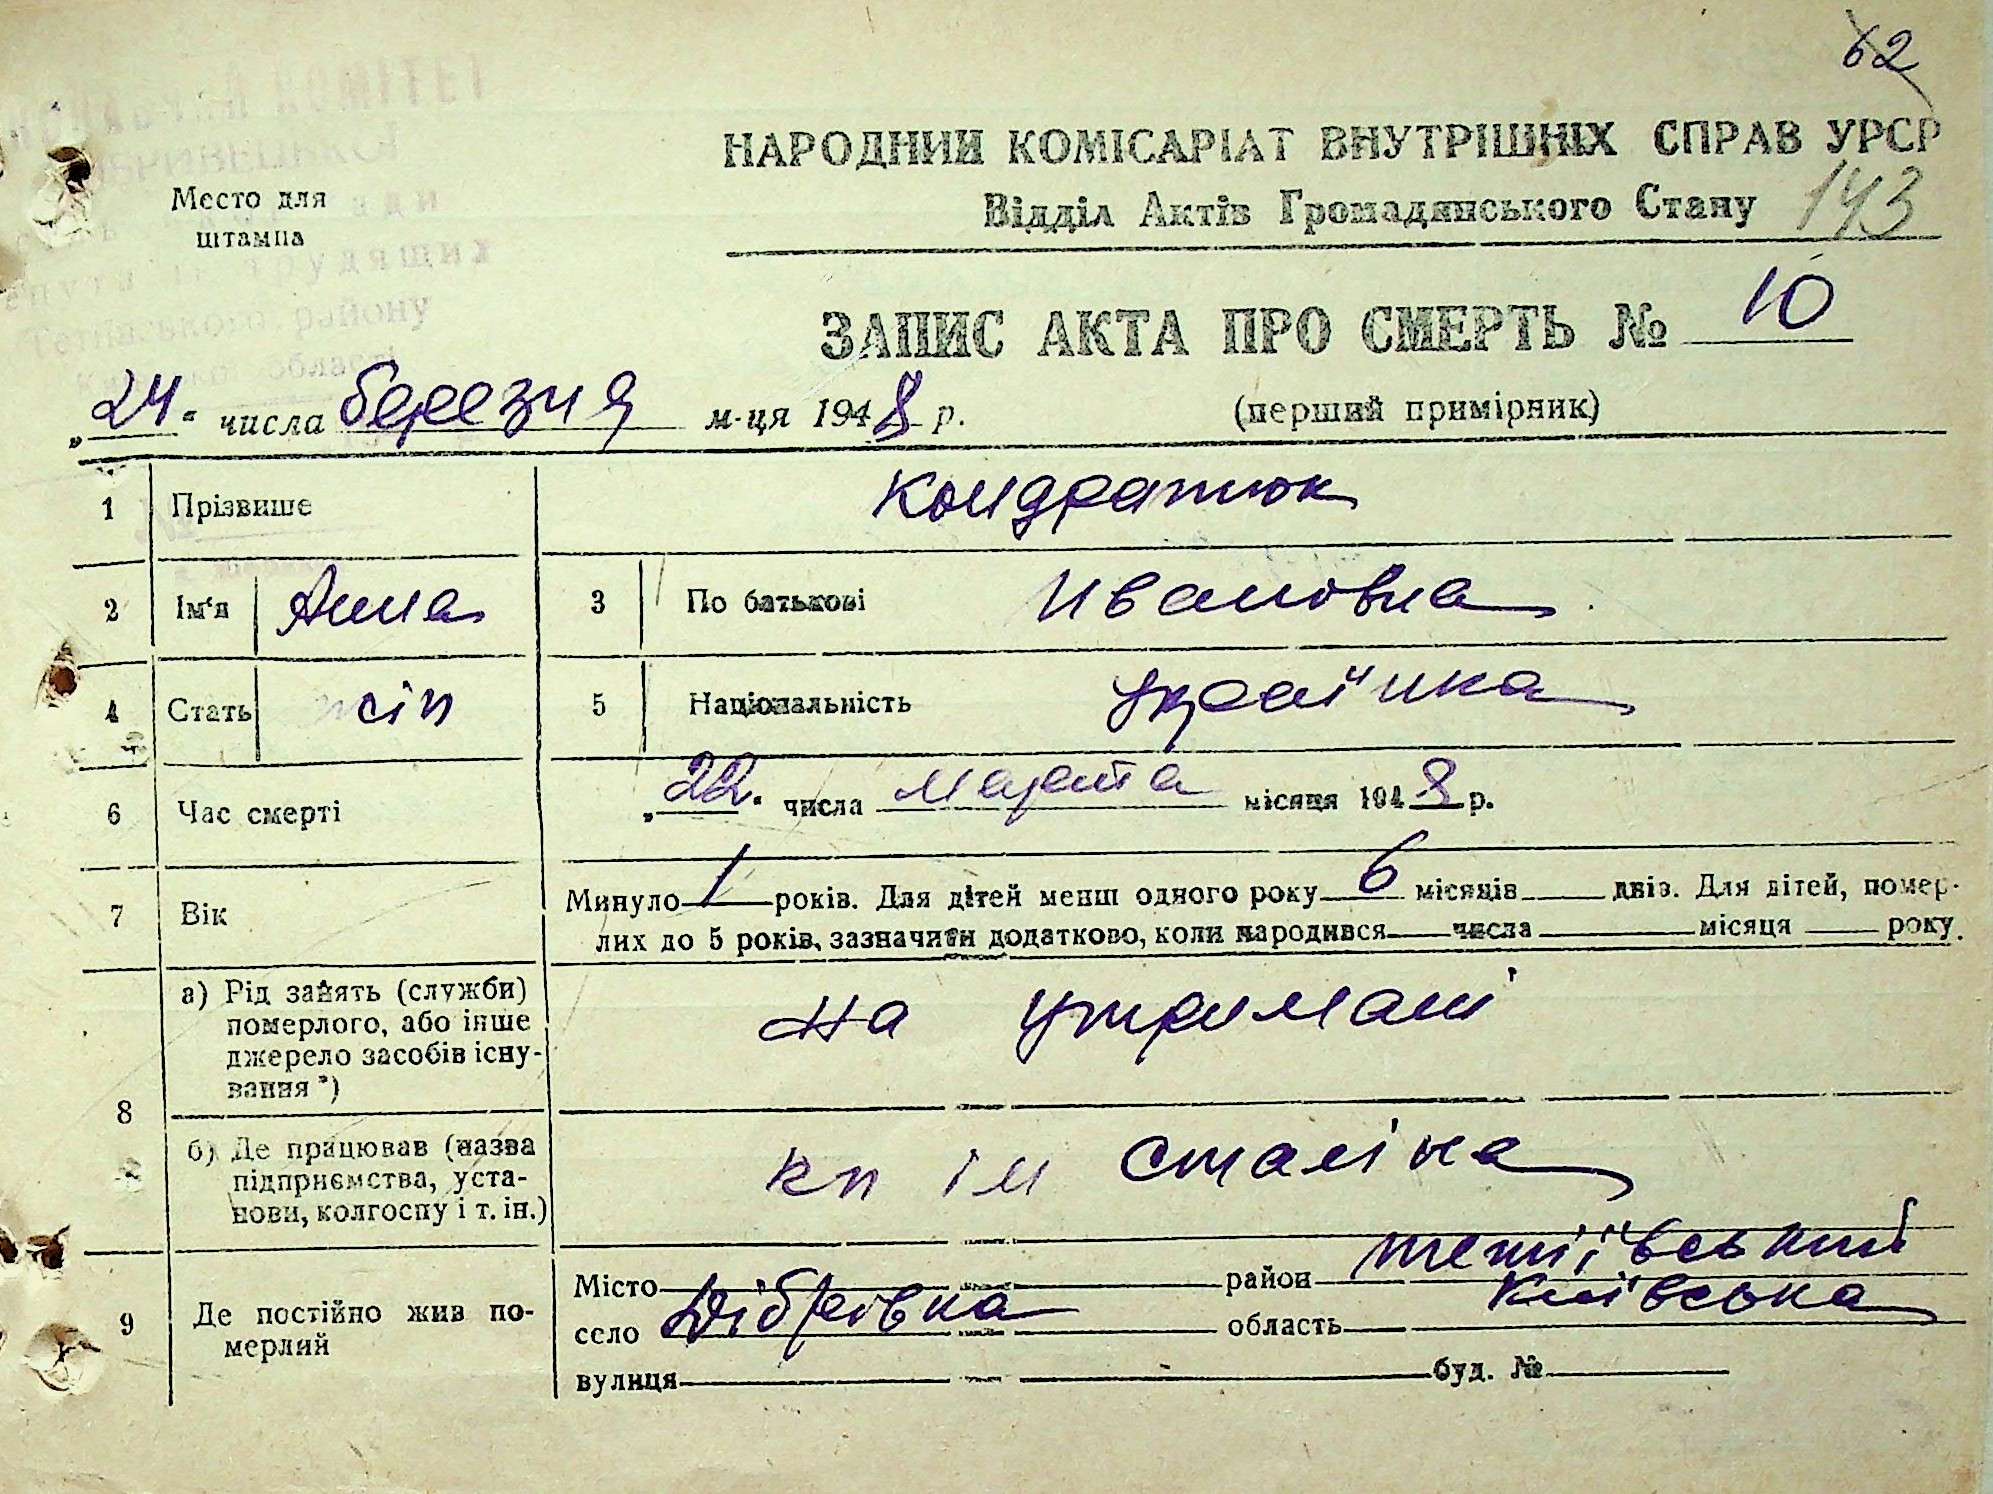 62
НАРОДНИЙ КОМІСАРІАТ ВНУТРІШНІХ СПРАВ УРСР
Відділ Актів Громадянського Стану 143
Место для
штампа
КОМІТЕТ
трудящих
Тетіївського району
області
ЗАПИС АКТА ПРО СМЕРТЬ № 10
„24“ числа березня м-ця 1948 р. (перший примірник)
1 Прізвише Кондратюк
2 Ім‘я Анна 3 По батькові Ивановна
4 Стать жін 5 Національність українка
6 Час смерті „22“ числа марта місяця 1948 р.
7 Вік Минуло 1 років. Для дітей менш одного року 6 місяців днів. Для дітей, помер-
лих до 5 років, зазначити додатково, коли народився числа місяця року.
8 а) Рід занять (служби)
померлого, або інше
джерело засобів існу-
вання*) на утримані
б) Де працював (назва
підприємства, уста-
нови, колгоспу і т. ін.) кп ім Сталіна
9 Де постійно жив по-
мерлий
Місто район тетіївський
село Дібрівка область Київська
вулиця буд. №